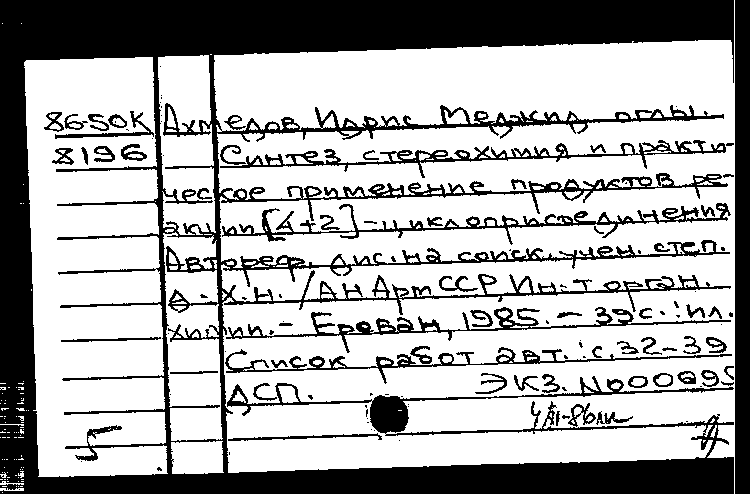 86-50К Ахмедов, Идрис Меджид оглы.
8196 Синтез, стереохимия и практи-
ческое применение продуктов ре-
акции [4+2]-циклоприсоединения
Автореф. дис. на соиск. учен. степ.
д. х.н. / АН АрмССР, Ин-т орган.
химии. - Ереван, 1985. - 39 с. : ил.
Список работ авт. : с. 32-39
ДСП. Экз. N000695
5